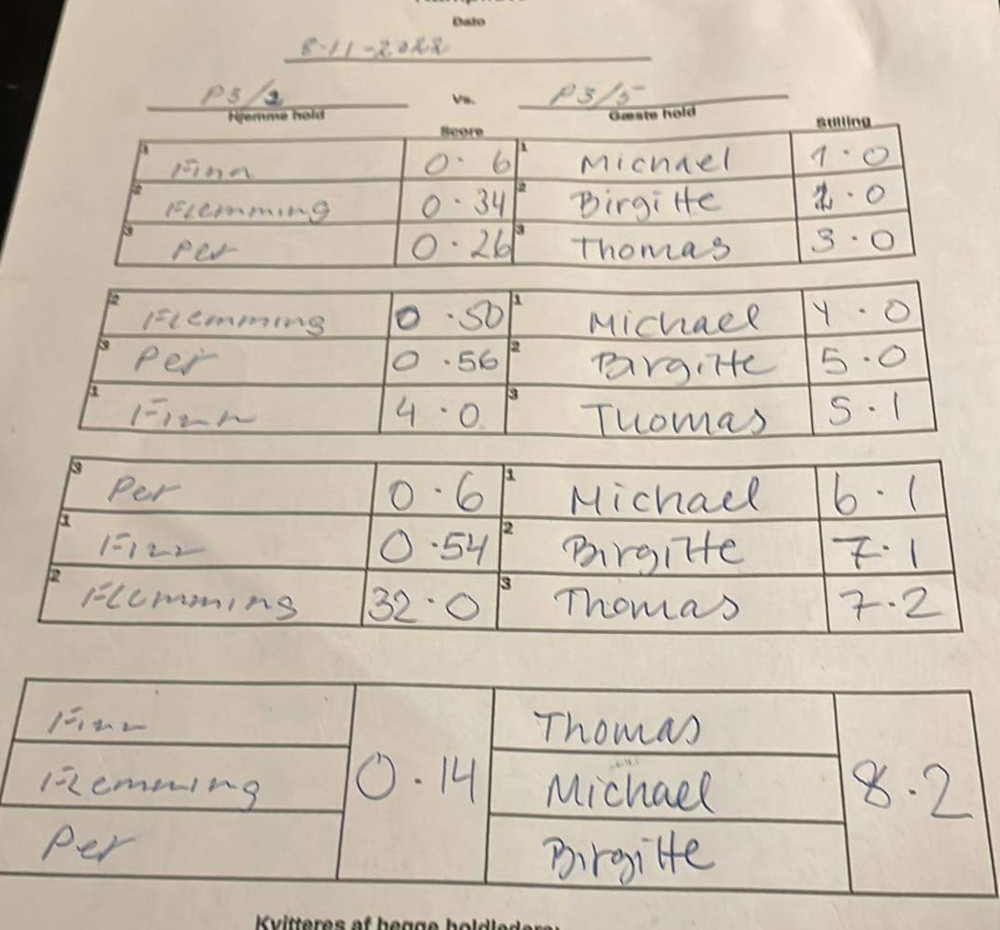 Dato
8-11-2022
P3/2 Vs. P3/5
Hjemme hold Gæste hold
Score Stilling
1 Finn 0·6 1 Michael 1·0
2 Flemming 0·34 2 Birgitte 2·0
3 Per 0·26 3 Thomas 3·0
2 Flemming 0·50 1 Michael 4·0
3 Per 0·56 2 Birgitte 5·0
1 Finn 4·0 3 Thomas 5·1
3 Per 0·6 1 Michael 6·1
1 Finn 0·54 2 Birgitte 7·1
2 Flemming 32·0 3 Thomas 7·2
Finn Thomas
Flemming 0·14 Michael 8·2
Per Birgitte
Kvitteres af begge holdledere: